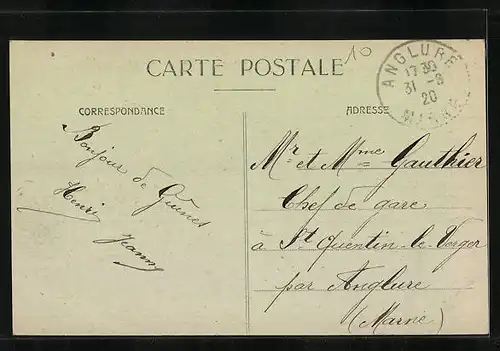 10
CARTE POSTALE
ANGLURE
17 30
31 -8
20
MARNE
CORRESPONDANCE
ADRESSE
Bonjour de
Henri Jeanne
Mr et Mme Gauthier
Chef de gare
à St Quentin-le-Verger
par Anglure
(Marne)